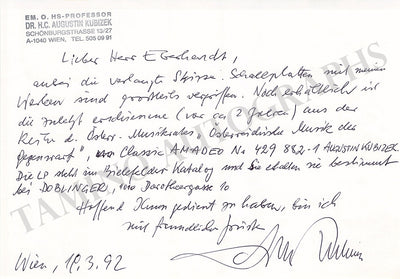 EM. O. HS-PROFESSOR
DR. H.C. AUGUSTIN KUBIZEK
SCHÖNBURGSTRASSE 13/27
A-1040 WIEN, TEL. 505 09 91
Lieber Herr Eberhardt,
anbei die verlangte Skizze. Schallplatten mit meinen
Werken sind großteils vergriffen. Noch erhältlich ist
die zuletzt erschienene (vor ca. Jahren) aus der
Reihe d. Österr. Musikrates, "Österreichische Musik der
Gegenwart", Classic AMADEO No 429 882-1 AUGUSTIN KUBIZEK
Die LP steht im Bielefelder Katalog und Sie erhalten sie bestimmt
bei DOBLINGER, Dorotheergasse 10
Hoffend Ihnen gedient zu haben, bin ich
mit freundlichen Grüßen
Wien, 19.3.92
TAMINO AUTOGRAPHS